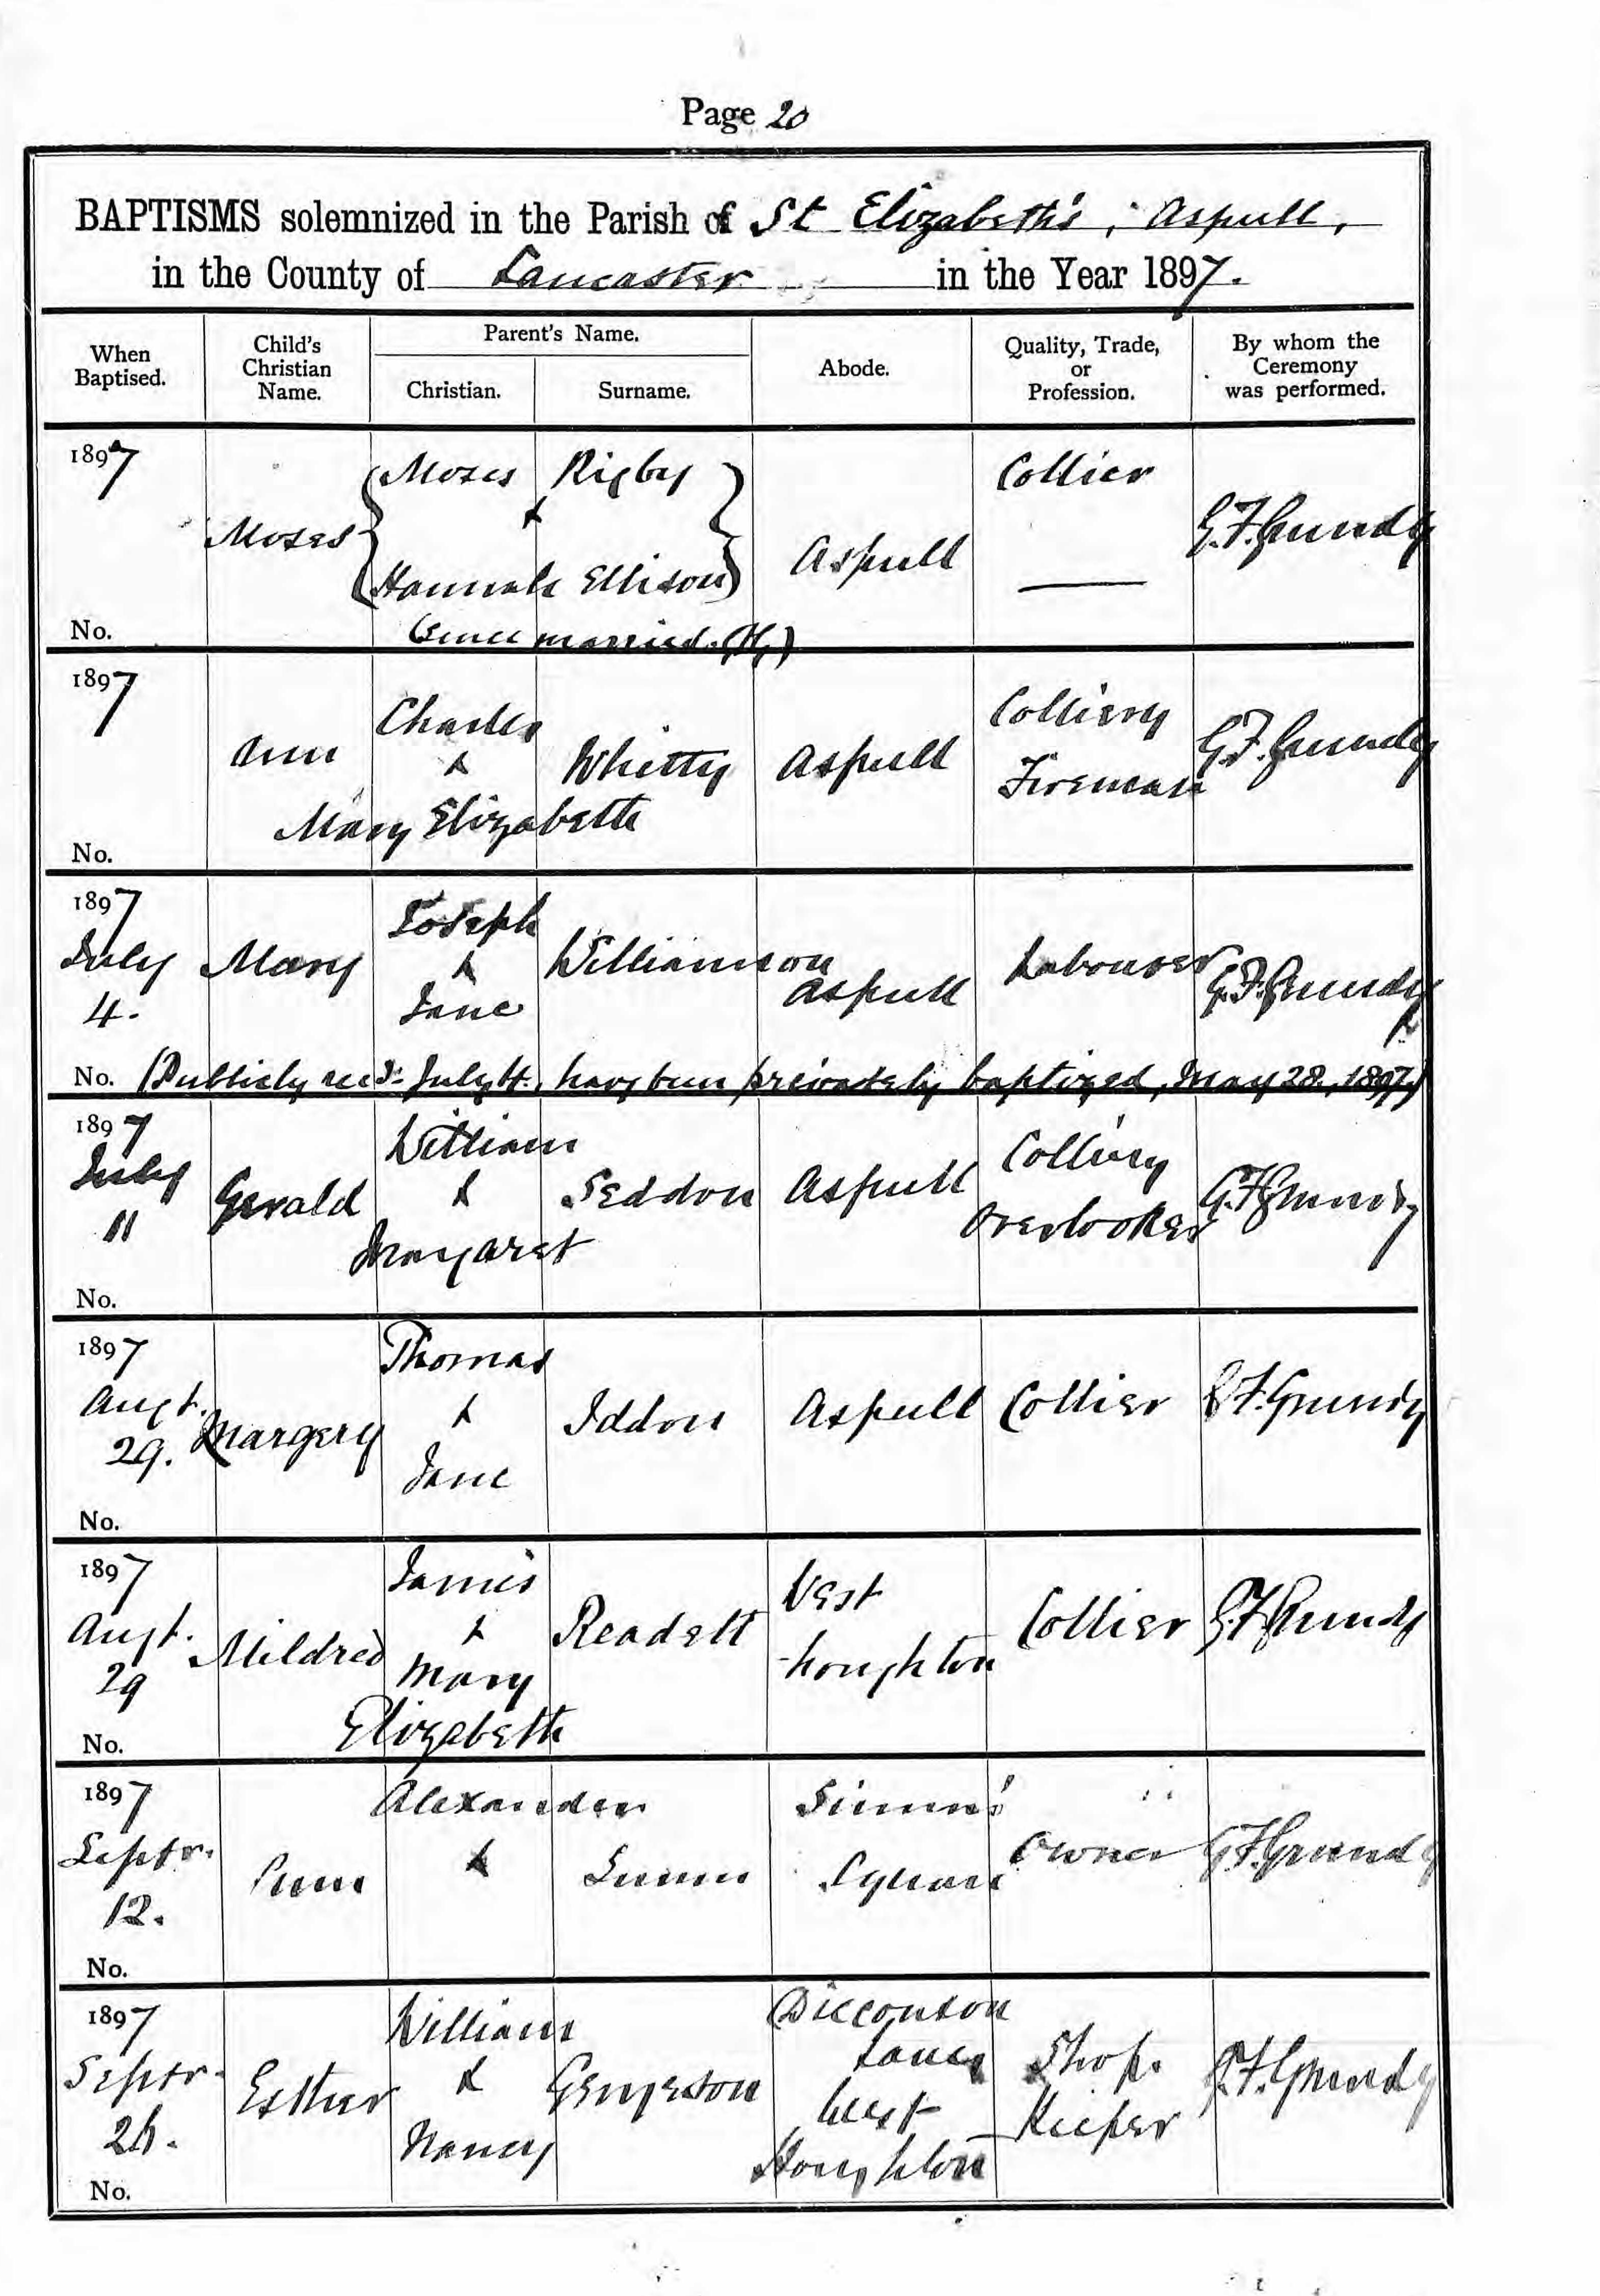 Page 20
BAPTISMS solemnized in the Parish of St Elizabeth's, Aspull,
in the County of Lancaster in the Year 1897.
When Baptised.
Child's Christian Name.
Parent's Name.
Christian.
Surname.
Abode.
Quality, Trade, or Profession.
By whom the Ceremony was performed.
1897
Moses
Moses Rigby
&
Hannah Ellison
Aspull
Collier
G.F. Grundy
No.
(since married.
1897
Ann
Charles
&
Mary Elizabeth
Whitty
Aspull
Colliery
Fireman
G.F. Grundy
No.
1897
July
4.
Mary
Joseph
&
Jane
Williamson
Aspull
Labourer
G.F. Grundy
No. (Publicly recd. July 4., havg been privately baptized, May 28, 1897)
1897
July
11
Gerald
William
&
Margaret
Seddon
Aspull
Colliery
Overlooker
G.F. Grundy
No.
1897
Augt.
29.
Margery
Thomas
&
Jane
Iddon
Aspull
Collier
G.F. Grundy
No.
1897
Augt.
29
Mildred
James
&
Mary
Elizabeth
Readett
West
houghton
Collier
G.F. Grundy
No.
1897
Septr.
12.
Alexander
&
Square
Owner
G.F. Grundy
No.
1897
Septr.
26.
Esther
William
&
Nancy
Gengeson
Dicconson
Lane,
West
Houghton
Shop-
Keeper
G.F. Grundy
No.